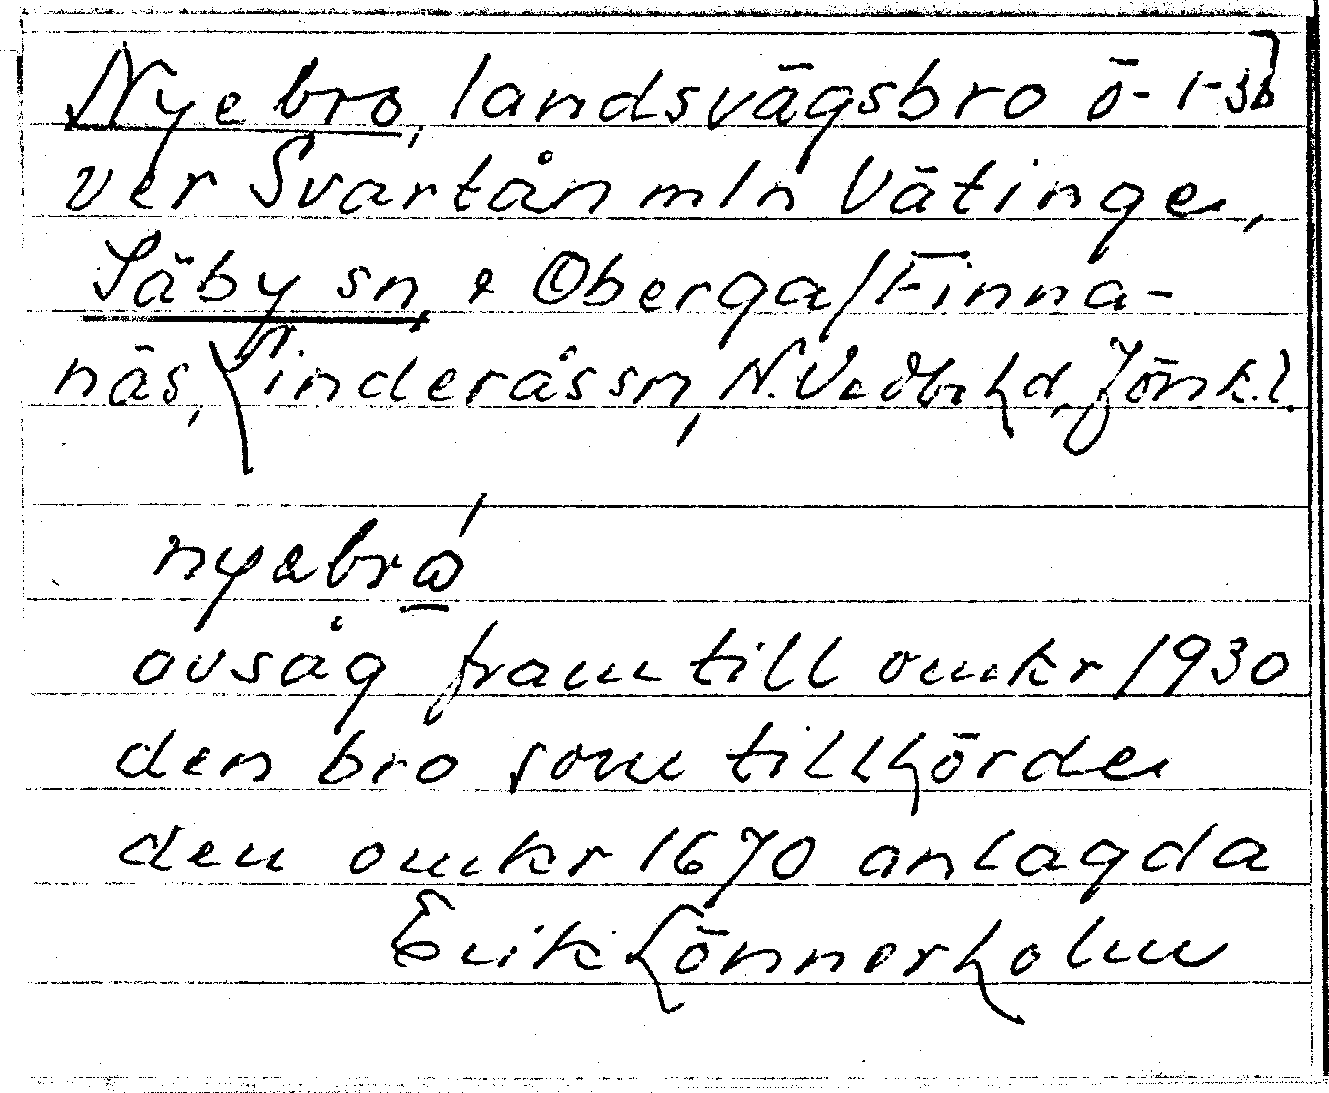 Nyebro, landsvägsbro ö- 1-3b
ver Svartån mln Vätinge,
Säby sn, & Oberga/Finna-
näs, Linderås sn, N. Vedbo hd, Jönk.l.
nyebrɷ́
avsåg fram till omkr 1930
den bro som tillhörde
den omkr 1670 anlagda
Erik Lönnerholm